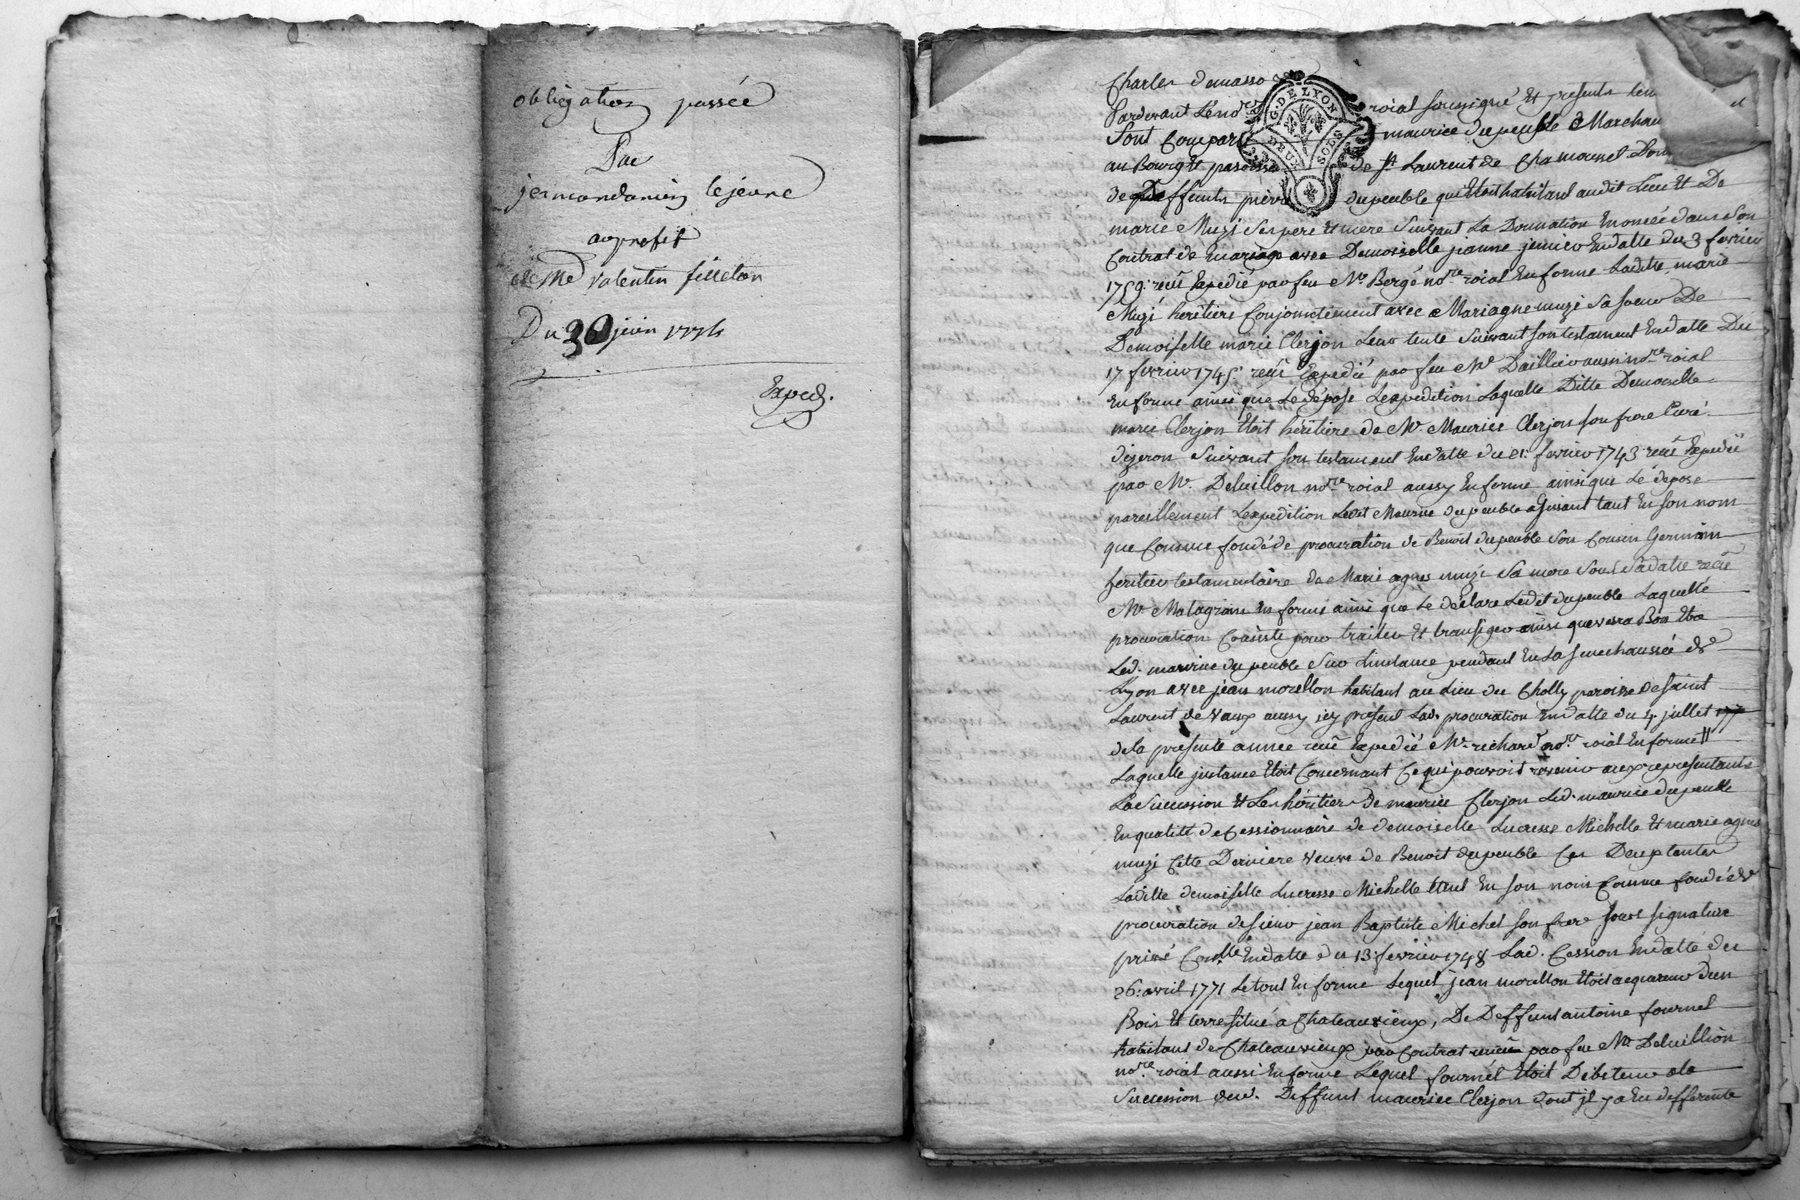 obligation passée
Par
jean
le jeune
au profit
de Me valentin filleton
Du 30 juin 1774
Exped.
G. DE LYON
DEUX SOLS
Charles
Pardevant Le nore roial soussigné Et présents
Sont Compar maurice dupeuble Marchan
au Bourg Et paroisse de St Laurent de Chamousset
de Deffunts pierre dupeuble qui Etoit habitant audit Lieu Et De
marie Muzi Ses pere Et mere Suivant La Donnation Enoncée dans Son
Contrat de mariage avec Demoiselle jeanne En datte du 3 fevrier
1759 reçu Expedié par feu Me Bergé nore roial En forme Laditte marie
Muzi heritiere Conjoinctement avec Mariagne muzi Sa soeur De
Demoiselle marie Clerjon Leur tente Suivant son testament En datte Du
17 fevrier 1745 reçu Expedié par feu Me Daillier aussi nore roial
En forme ainsi que Le dépose L'expedition Laquelle Ditte Demoiselle
marie Clerjon Etoit héritiere de Me Maurice Clerjon son frere Curé
dizeron Suivant son testament En datte du 21 fevrier 1743 reçu Expedié
par Me Deluillon nore roial aussy En forme ainsi que Le dépose
pareillement L'expedition Ledit Maurice dupeuble agissant tant En son nom
que Comme fondé de procuration de Benoit dupeuble Son Cousin Germain
heritier testamentaire de Marie agnes muzi Sa mere Sous Sa datte reçu
Me Matagrin En forme ainsi que Le déclare Ledit dupeuble Laquelle
procuration pour traiter Et transiger ainsi que verra Bon Etre
Led. maurice dupeuble Sur Linstance pendant En La Senechaussée de
Lyon avec jean morellon habitant au Lieu du Cholly paroisse de Saint
Laurent de Vaux aussy icy présent Lad. procuration En datte du 4 juillet 177
de la présente année reçu Expedié Me richard nore roial En forme
Laquelle jnstance Etoit Concernant Ce qui pouvoit revenir aux representants
La Succession Et Les héritiers De maurice Clerjon Led. maurice dupeuble
En qualité de Cessionnaire de demoiselle Lucresse Michelle Et marie agnes
muzi Cette Derniere veuve de Benoit dupeuble Ces Deux tentes
Laditte demoiselle Lucresse Michelle tant En son nom Comme fondée de
procuration de sieur jean Baptiste Michel son frere sous signature
privé En datte du 13 fevrier 1748 Lad. Cession En datte du
26 avril 1771 Le tout En forme Lequel jean morellon Etoit acquereur d'un
Bois Et terre situé a Chateauvieux, De Deffunt antoine fournel
habitant de Chateauvieux par Contrat reçu par feu Me Deluillion
nore roial aussi En forme Lequel fournel Etoit Debiteur de la
Succession dud. Deffunt maurice Clerjon Dont jl y a Eu differente